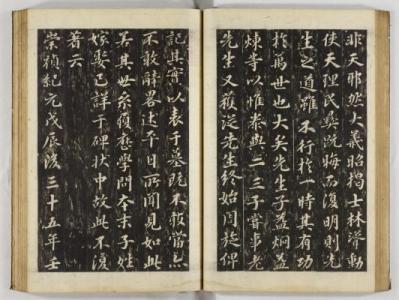 非天耶然大義昭揭士林聳動
使天理民彝既晦而復明則先
生之道雖不行於一時其有功
於萬世也大矣先生子益炯益
煉等以惟泰與二三子嘗事老
先生又獲從先生終始周旋俾
記其實以表于墓既不敢當亦
不敢辭畧述平日所聞見如此
若其世系履歷學問本末子姓
嫁娶已詳于碑狀中故此不復
著云
崇禎紀元戊辰後三十五年壬